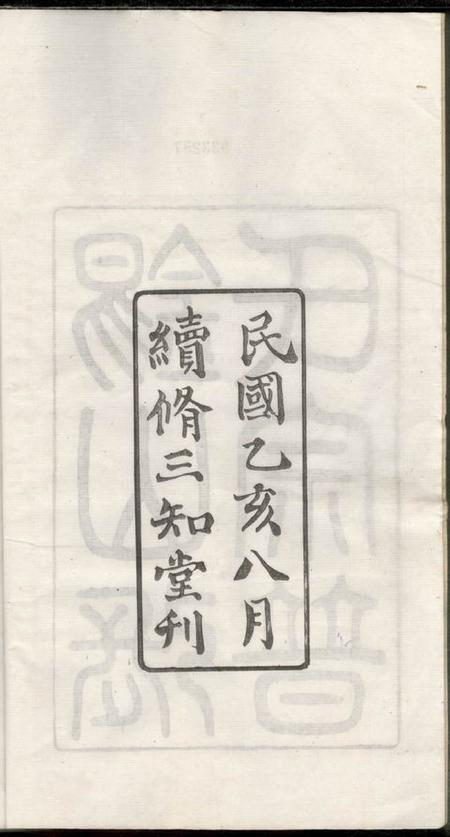 民國乙亥八月
續脩三知堂刊